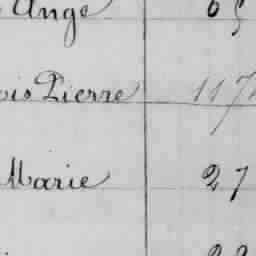 Ange 65
ois Pierre 117
Marie 27